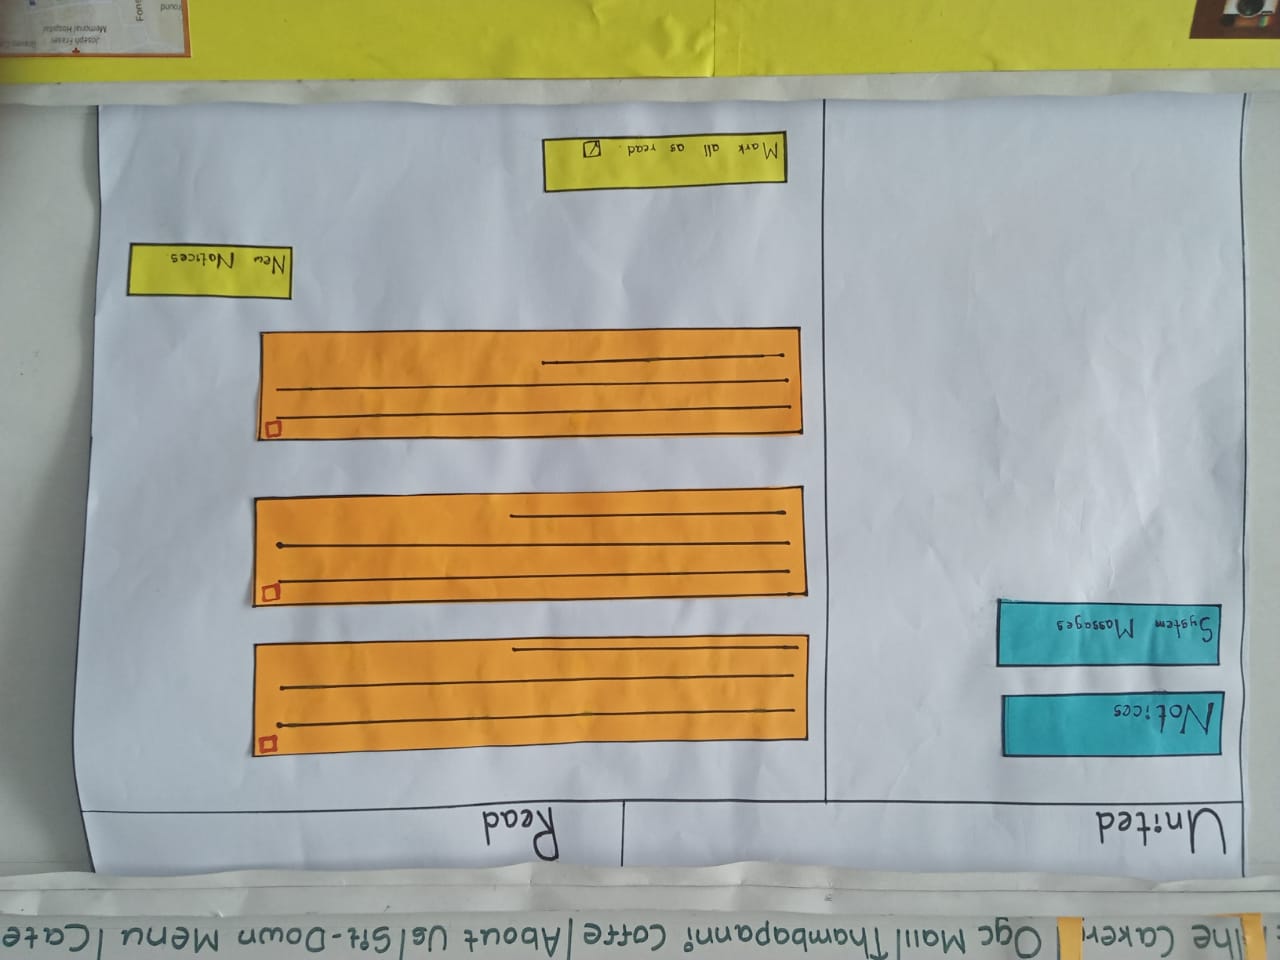 The Caker | Ogc Mall | Thambapanni Coffe | About Us | Sit-Down Menu | Cate
United
Read
Notices
System Massages
New Notices.
Mark all as read.
Joseph Fraser
Memorial Hospital
round